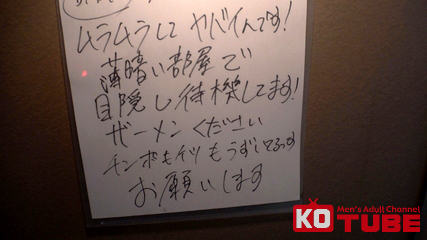 ムラムラして ヤバイんです!
薄暗い部屋で
目隠し待機してます!
ザーメンください
チンポもケツもうずいてるっす
お願いします
Men's Adult Channel
KO TUBE